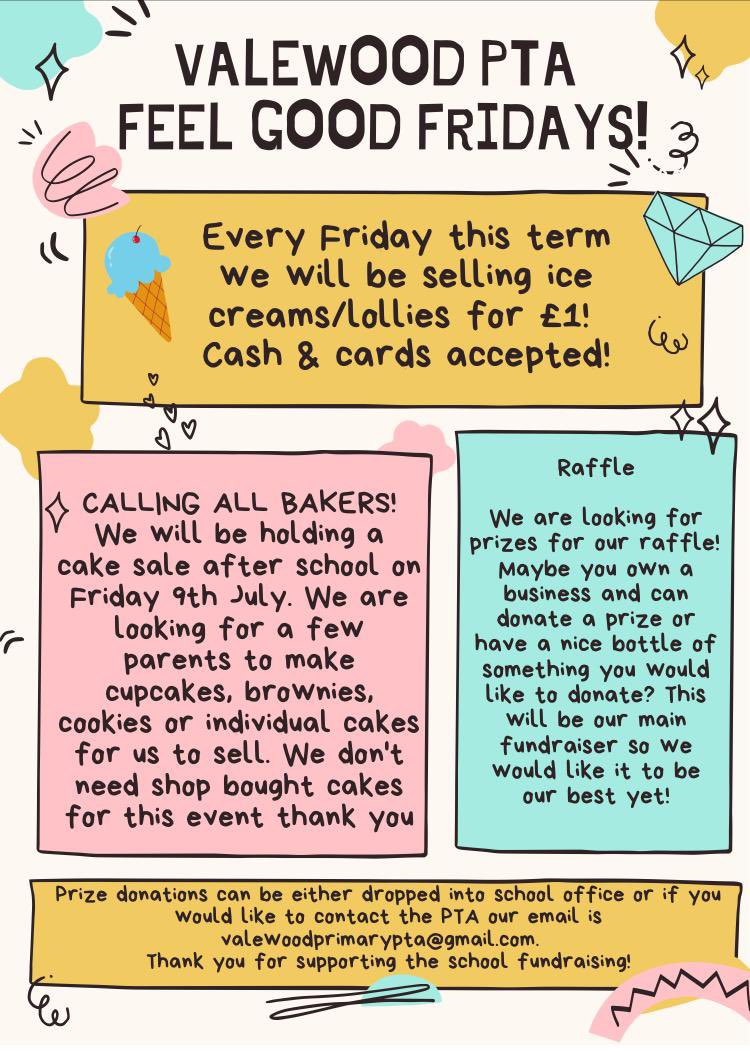 VALEWOOD PTA
FEEL GOOD FRIDAYS!
Every Friday this term
we will be selling ice
creams/lollies for £1!
Cash & cards accepted!
CALLING ALL BAKERS!
We will be holding a
cake sale after school on
Friday 9th July. We are
looking for a few
parents to make
cupcakes, brownies,
cookies or individual cakes
for us to sell. We don't
need shop bought cakes
for this event thank you
Raffle
We are looking for
prizes for our raffle!
Maybe you own a
business and can
donate a prize or
have a nice bottle of
something you would
like to donate? This
will be our main
fundraiser so we
would like it to be
our best yet!
Prize donations can be either dropped into school office or if you
would like to contact the PTA our email is
valewoodprimarypta@gmail.com.
Thank you for supporting the school fundraising!